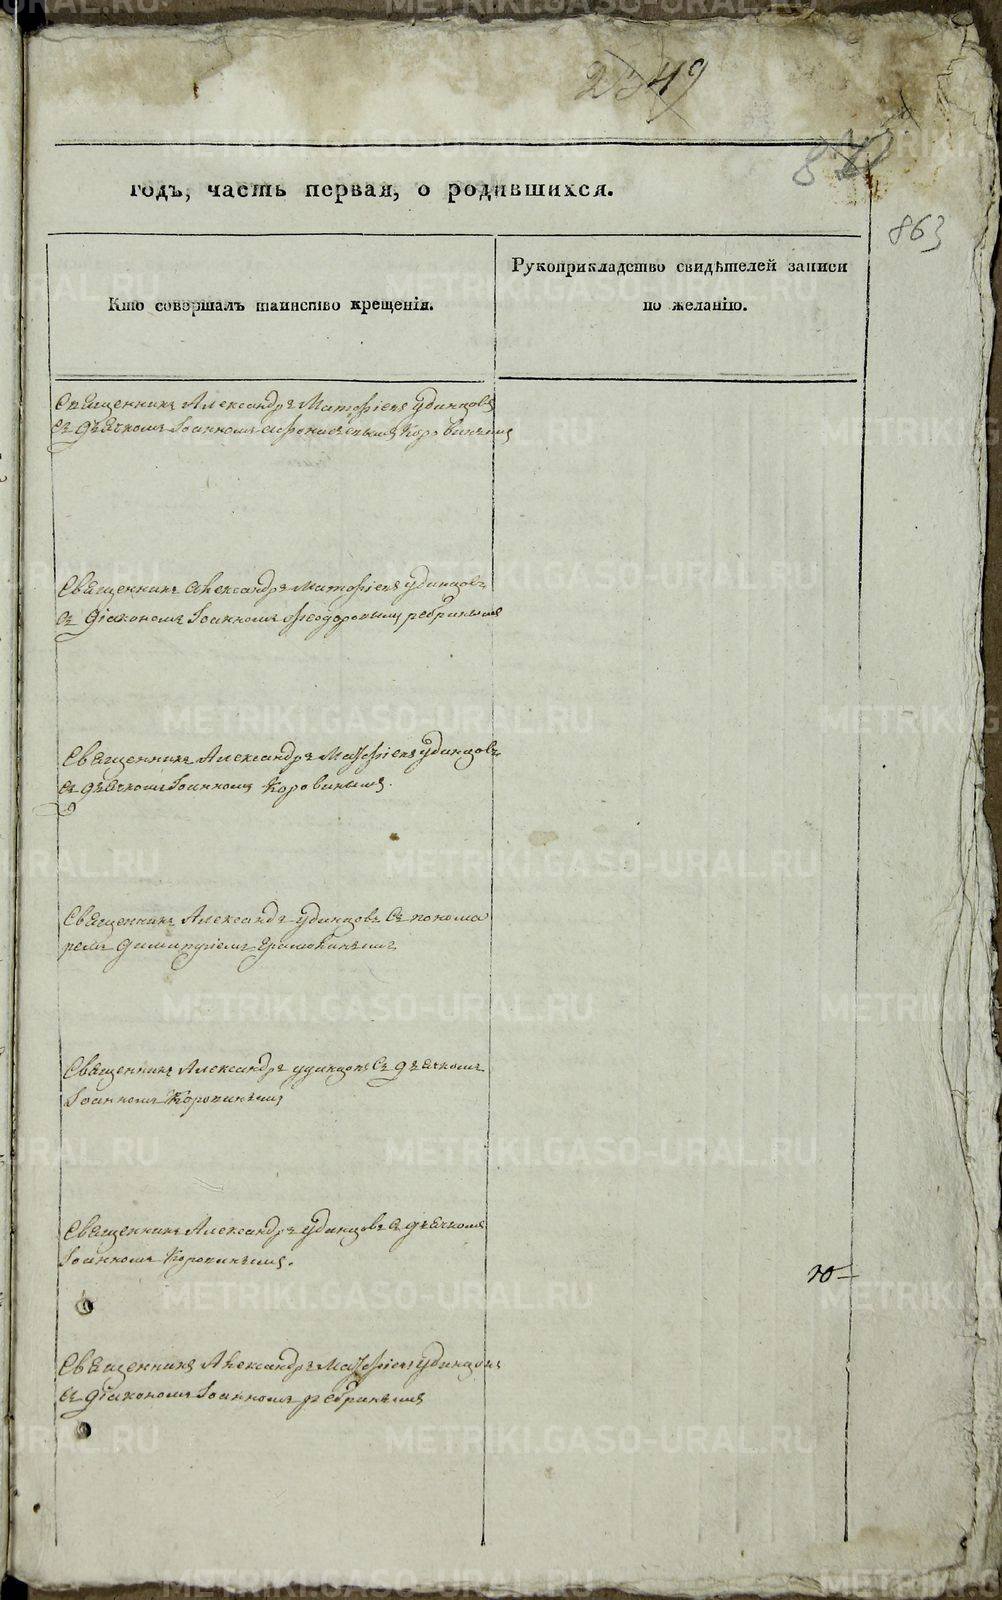 49
863
годъ, часть первая, о родившихся.
Кто совершалъ таинство крещенія.
Рукоприкладство свидѣтелей записи
по желанію.
Священникъ Александръ Матфіевъ Удинцовъ
съ дьячкомъ Іоанномъ Коровинымъ
Священникъ Александръ Матфіевъ Удинцовъ
съ діакономъ Іоанномъ Феодоровымъ Ребринымъ
Священникъ Александръ Матфіевъ Удинцовъ
съ дьячкомъ Іоанномъ Коровинымъ.
Священникъ Александръ Удинцовъ съ понома
ремъ Димитріемъ
Священникъ Александръ Удинцовъ съ дьячкомъ
Іоанномъ Коровинымъ
Священникъ Александръ Удинцовъ съ дьячкомъ
Іоанномъ Коровинымъ.
Священникъ Александръ Матфіевъ Удинцовъ
съ діакономъ Іоанномъ Ребринымъ
METRIKI.GASO-URAL.RU